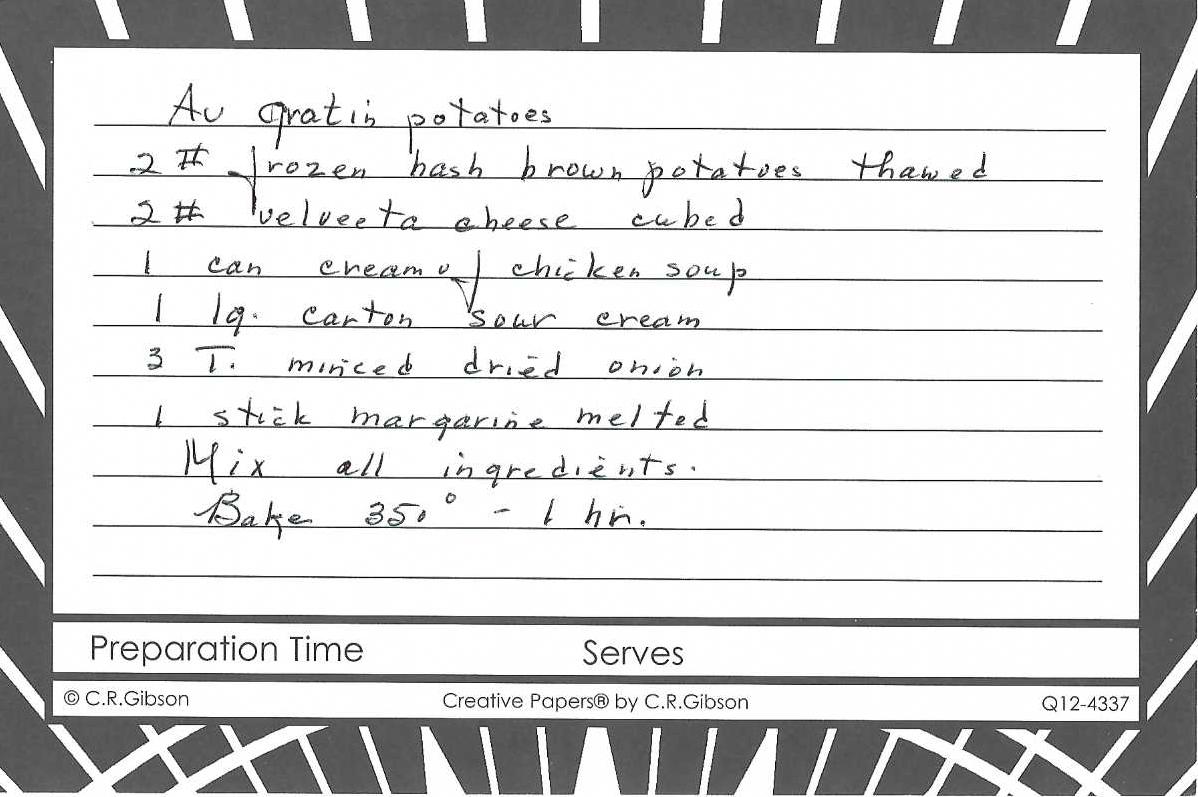 Au gratin potatoes
2 # frozen hash brown potatoes thawed
2 # velveeta cheese cubed
1 can cream of chicken soup
1 lg. carton sour cream
3 T. minced dried onion
1 stick margarine melted
Mix all ingredients.
Bake 350° - 1 hr.
Preparation Time Serves
© C.R.Gibson Creative Papers® by C.R.Gibson Q12-4337